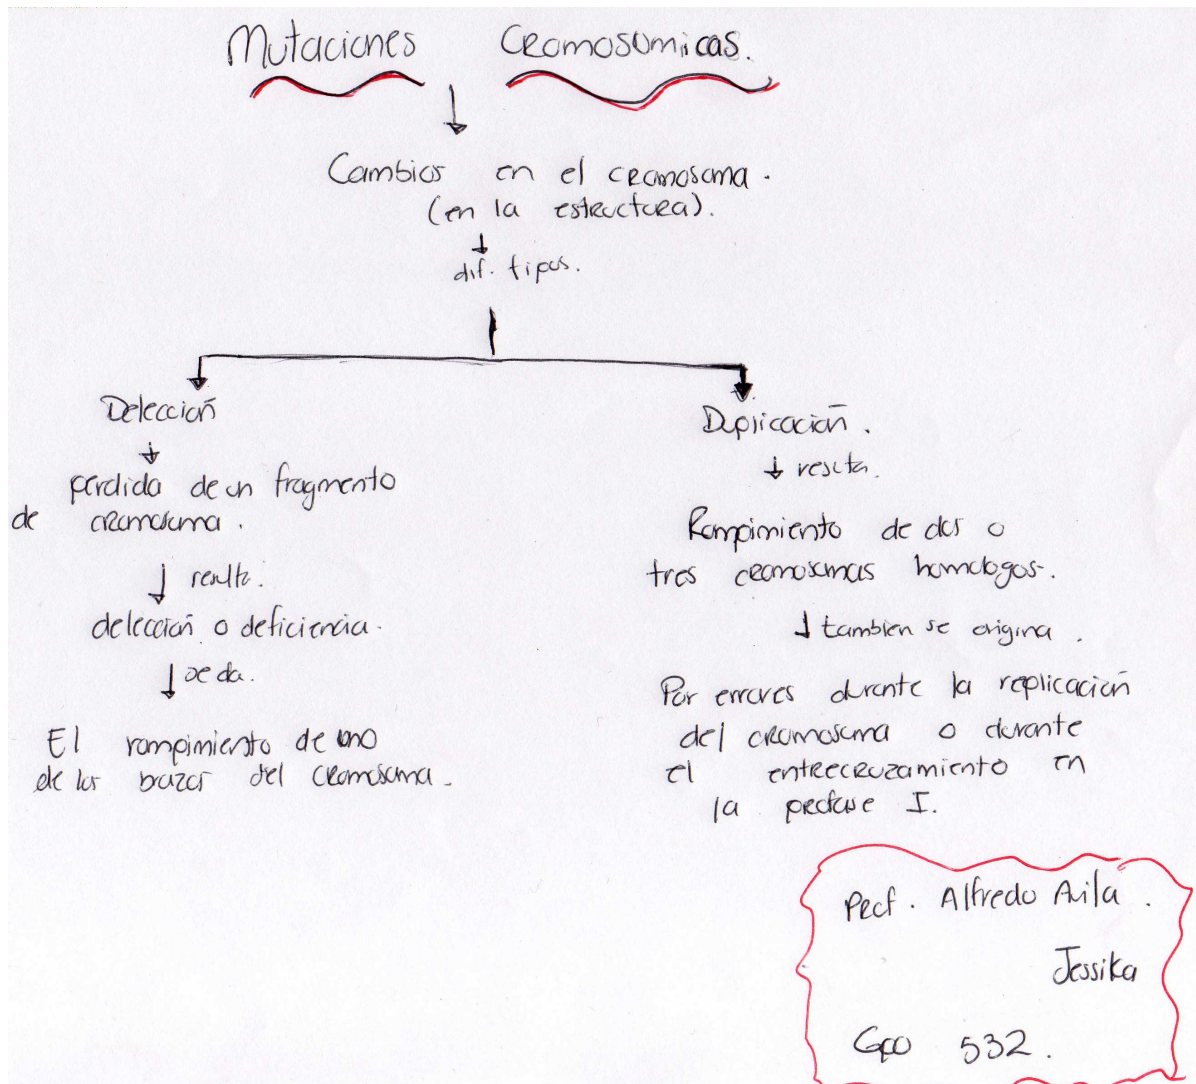 Mutaciones Cromosomicas.
Cambios en el cromosoma.
(en la estructura).
dif. tipos.
Delección
perdida de un fragmento
de cromosoma.
resulta.
delección o deficiencia.
se da.
El rompimiento de uno
de los brazos del cromosoma.
Duplicación.
resulta.
Rompimiento de dos o
tres cromosomas homologos.
tambien se origina.
Por errores durante la replicación
del cromosoma o durante
el entrecruzamiento en
la profase I.
Prof. Alfredo Avila.
Jessika
Gpo 532.